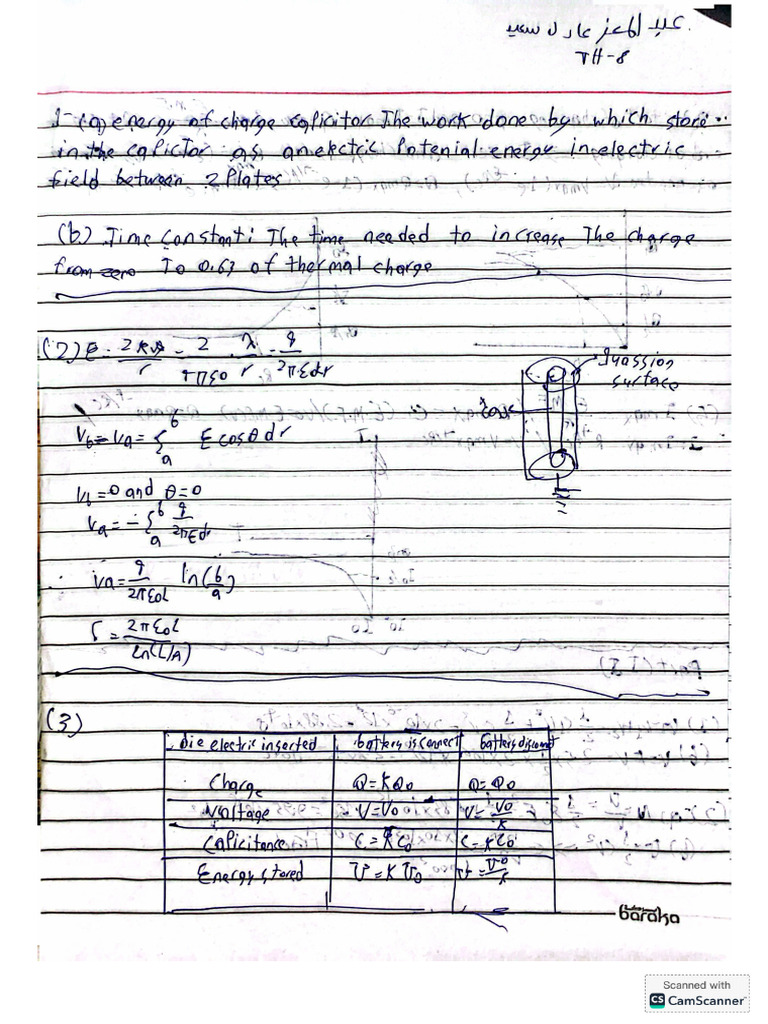 عبد المعز عادل سعيد
TH-8
1- (a) energy of charge capicitor The work done by which store
in the capictor as an electric Potenial energy in electric
field between 2 Plates
(b) Time constant: The time needed to increase The charge
from zero To 0.63 of thermal charge
(2) E = 2kλ/r = 2/4πε0 λ/r = q/2πε0lr
guassion
surface
Vb - Va = ∫ₐᵇ E cosθ dr
Vb = 0 and θ = 0
Va = -∫ₐᵇ q/2πε dr
Va = q/2πε0L ln(b/a)
C = 2πε0L/ln(L/A)
(3)
die electric inserted battery is connect battery disconnect
Charge Q = KQ0 Q = Q0
Voltage V = V0 V = V0/K
Capicitance C = KC0 C = KC0
Energy stored U = KU0 U = U0/K
baraka
Scanned with
CS CamScanner